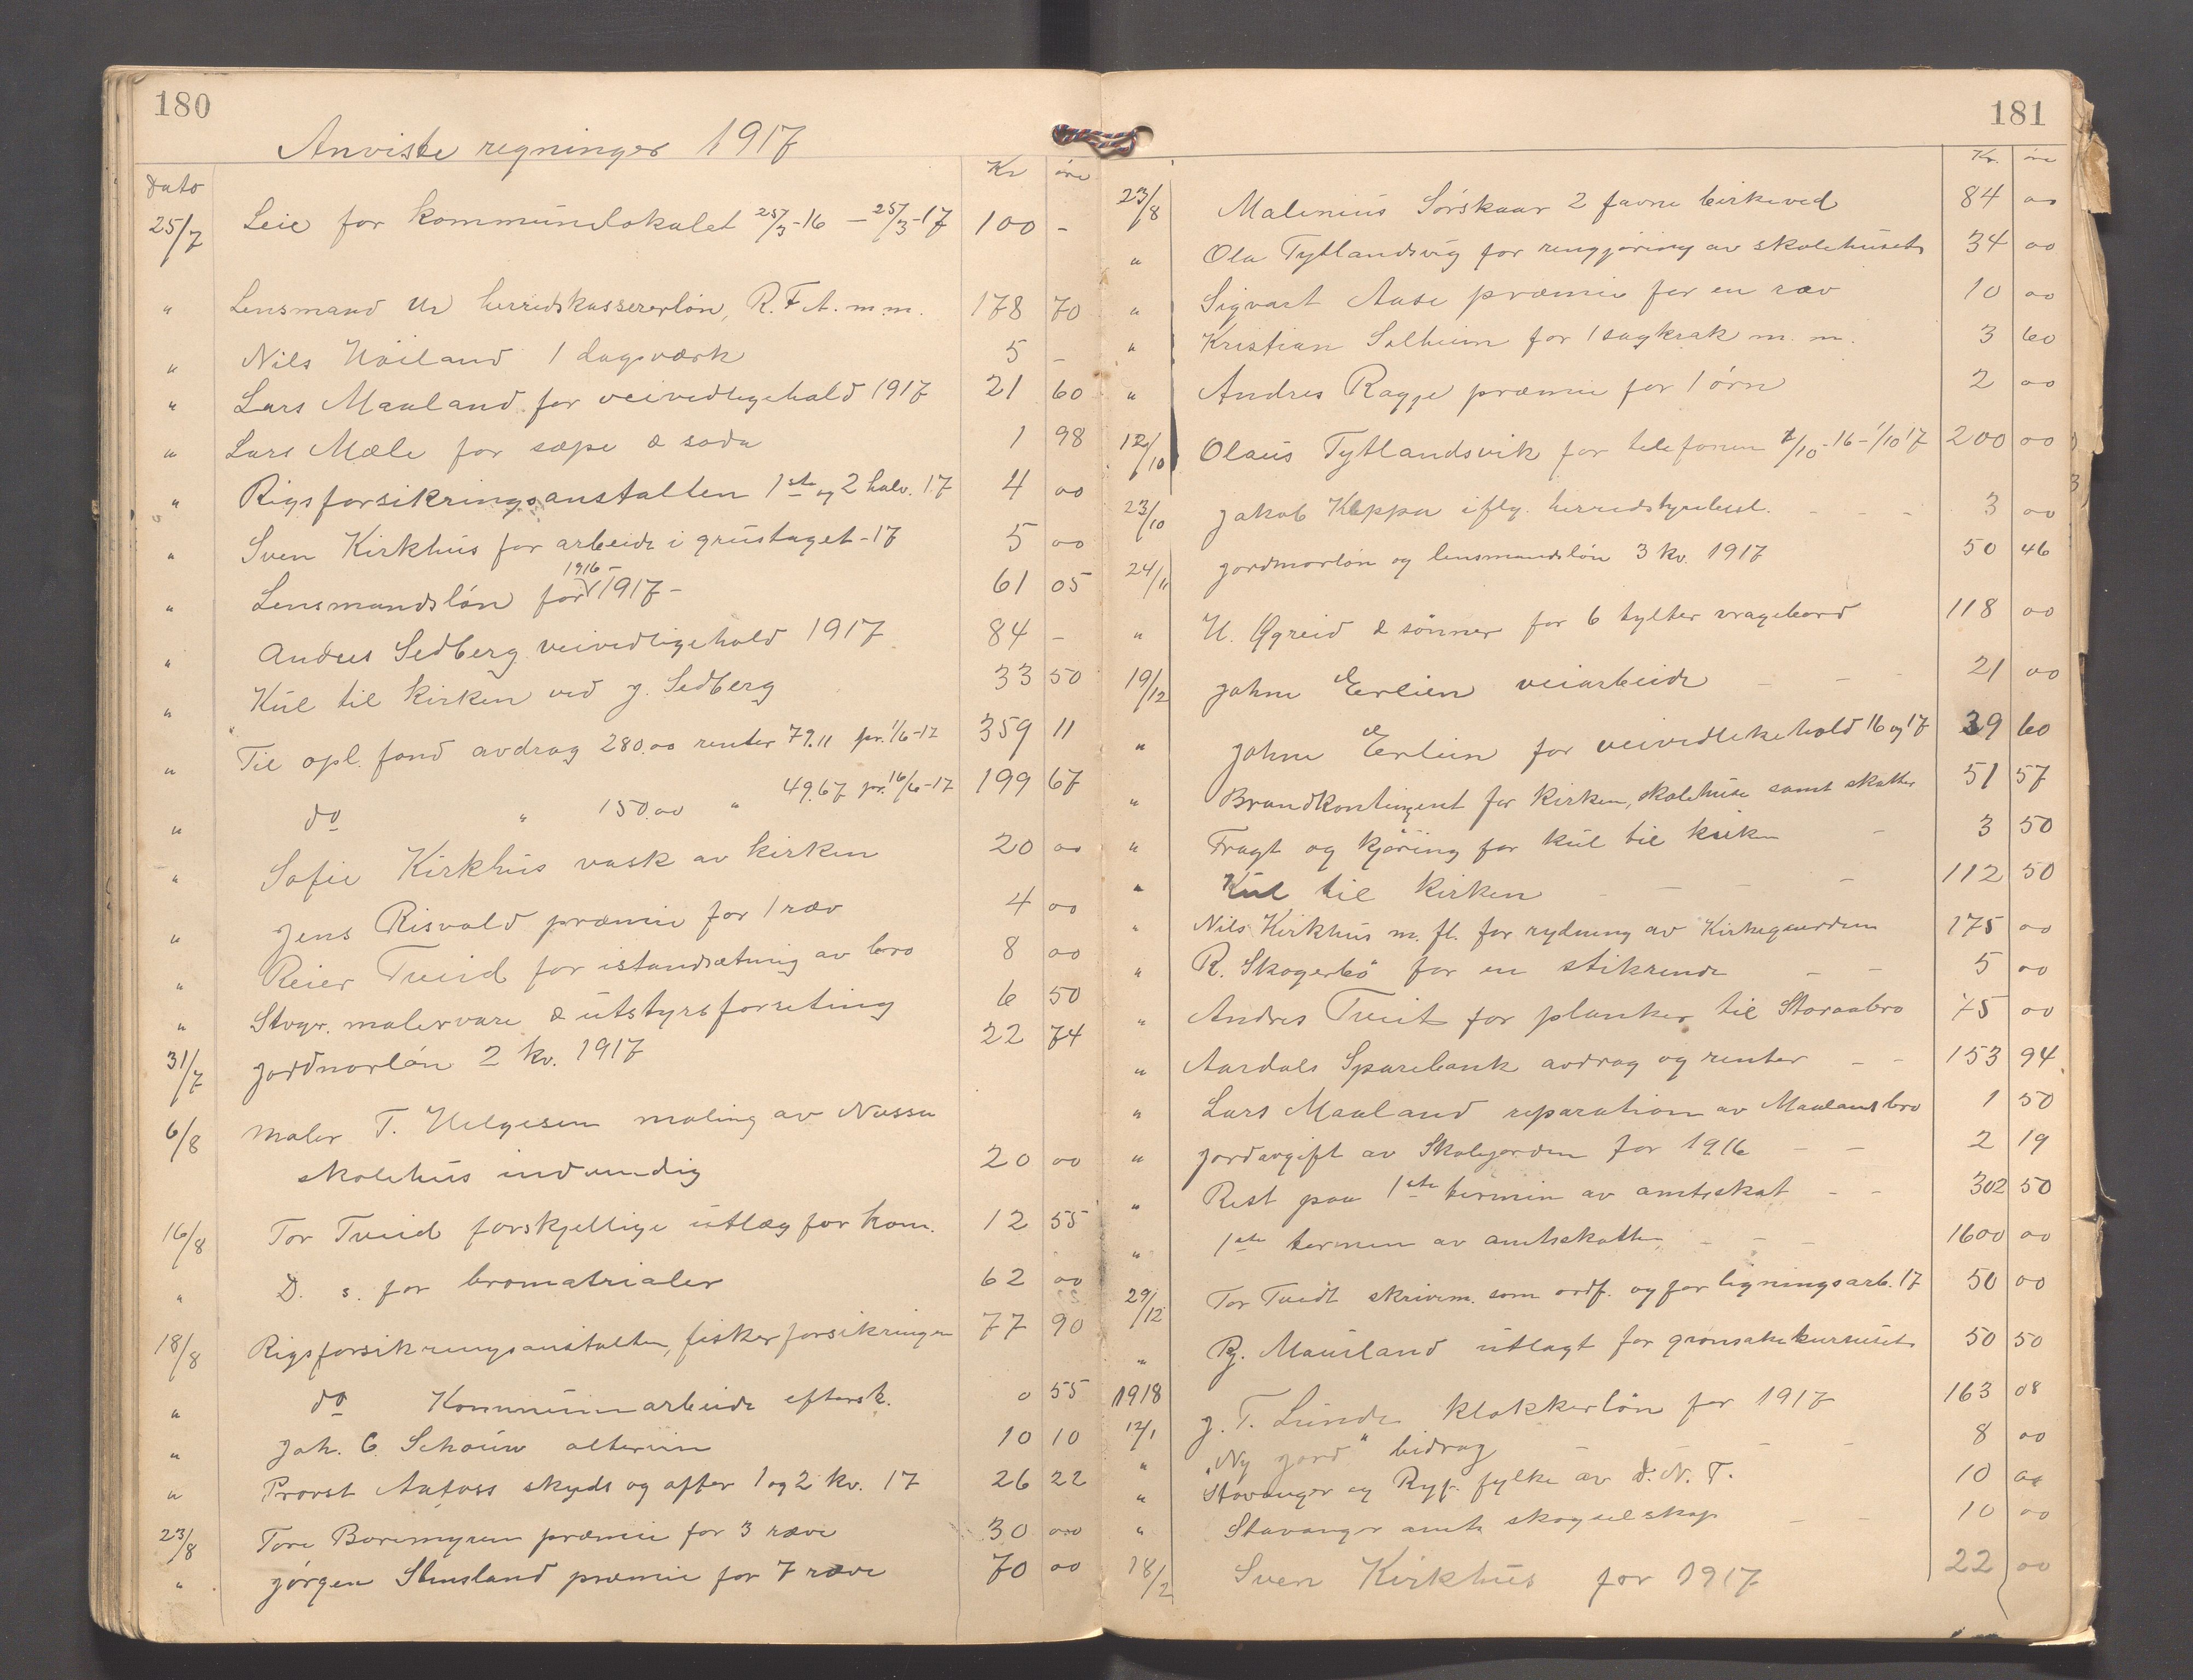 180
Anviste regninger 1917
Dato Kr øre
25/7 Leie for kommunelokalet 25/3-16 – 25/3-17 100 -
" Lensmand Ur herredskassererløn, R.F.A. m.m. 178 70
" Nils Høiland 1 dagsværk 5 -
" Lars Maaland for veivedligehold 1917 21 60
" Lars Mæle for sæpe & soda 1 98
" Rigsforsikringsanstalten 1ste og 2 halv. 17 4 00
" Sven Kirkhus for arbeide i grustaget -17 5 00
" Lensmandsløn for 1916 - 1917 - 61 05
" Andres Sedberg veivedligehold 1917 84 -
" Kul til kirken ved J. Sedberg 33 50
" Til opl. fond avdrag 280.00 renter 79.11 pr. 1/6-17 359 11
" do " 150.00 " 49.67 pr. 16/6-17 199 67
" Sofie Kirkhus vask av kirken 20 00
" Jens Risvold præmie for 1 ræv 4 00
" Reier Tveid for istandsætning av bro 8 00
" Stvgr. malervare & utstyrsforretning 6 50
31/7 Jordmorløn 2 kv. 1917 22 74
6/8 Maler T. Helgesen maling av Nessa
skolehus indvendig 20 00
16/8 Tor Tveid forskjellige utlæg for kom. 12 55
" D. s. for bromatrialer 62 00
18/8 Rigsforsikringsanstalten, fiskerforsikringen 77 90
" do Kommunearbeide eftersk. 0 55
" Joh. C Schouw altervin 10 10
" Provst Aafoss skyds og offer 1 og 2 kv. 17 26 22
23/8 Tore Boremyren præmie for 3 ræve 30 00
" Jørgen Stensland præmie for 7 ræve 70 00
181
Kr. øre
23/8 Malenius Sørskaar 2 favne birkeved 84 00
" Ola Tytlandsvig for rengjøring av skolehuset 34 00
" Sigvart Aase præmie for en ræv 10 00
" Kristian Solheim for 1 sagkrak m. m. 3 60
" Andres Ragge præmie for 1 ørn 2 00
12/10 Olaus Tytlandsvik for telefonen 1/10-16-1/10 17 200 00
23/10 Jakob Keppa iflg. herredstyrebesl. - - - 3 00
24/11 Jordmorløn og lensmandsløn 3 kv. 1917 50 46
" H. Øgreid & sønner for 6 tylter vragbord 118 00
19/12 Johne Erlien veiarbeide - - - 21 00
" Johne Erlien for veivedlikehold 16 og 17 39 60
" Brandkontingent for kirken, skolehuse samt skatter 51 57
" Fragt og kjøring for kul til kirken - 3 50
" Kul til kirken - - - - 112 50
" Nils Kirkhus m. fl. for rydning av Kirkegaarden 175 00
" R. Skogerbø for en stikrende - - 5 00
" Andres Tveit for planker til Storaabro 75 00
" Aardals Sparebank avdrag og renter - - 153 94
" Lars Maaland reparation av Maalandsbro 1 50
" Jordavgift av Skolejorden for 1916 - - 2 19
" Rest paa 1ste termin av amtsskat - - 302 50
" 1ste termin av amtsskatten - - - 1600 00
29/12 Tor Tveidt skrivem. som ordf. og for ligningsarb. 17 50 00
" Bj. Mauland utlagt for grønsakekurset 50 50
1918
12/1 J. T. Lunde klokkerløn for 1917 163 08
" "Ny jord" bidrag - - - 8 00
" Stavanger og Ryf. fylke av D. N. T. 10 00
" Stavanger amts skogselskap - - 10 00
18/2 Sven Kirkhus for 1917 22 00